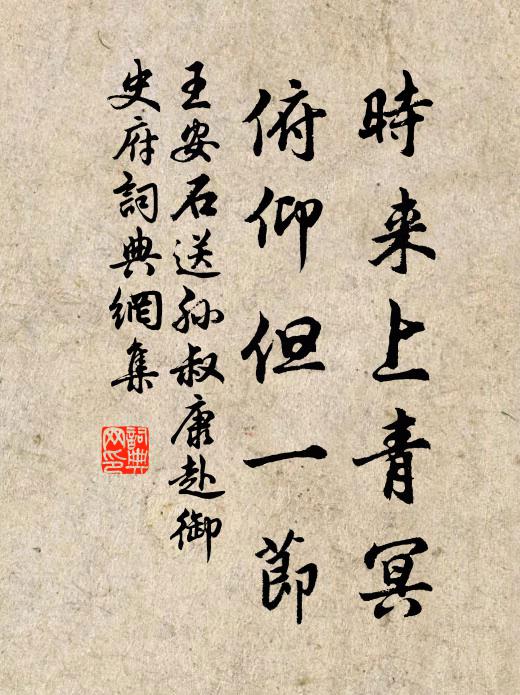 時来上青冥
俯仰但一節
王安石送孙叔康赴御
史府詞典網集
詞典
网印